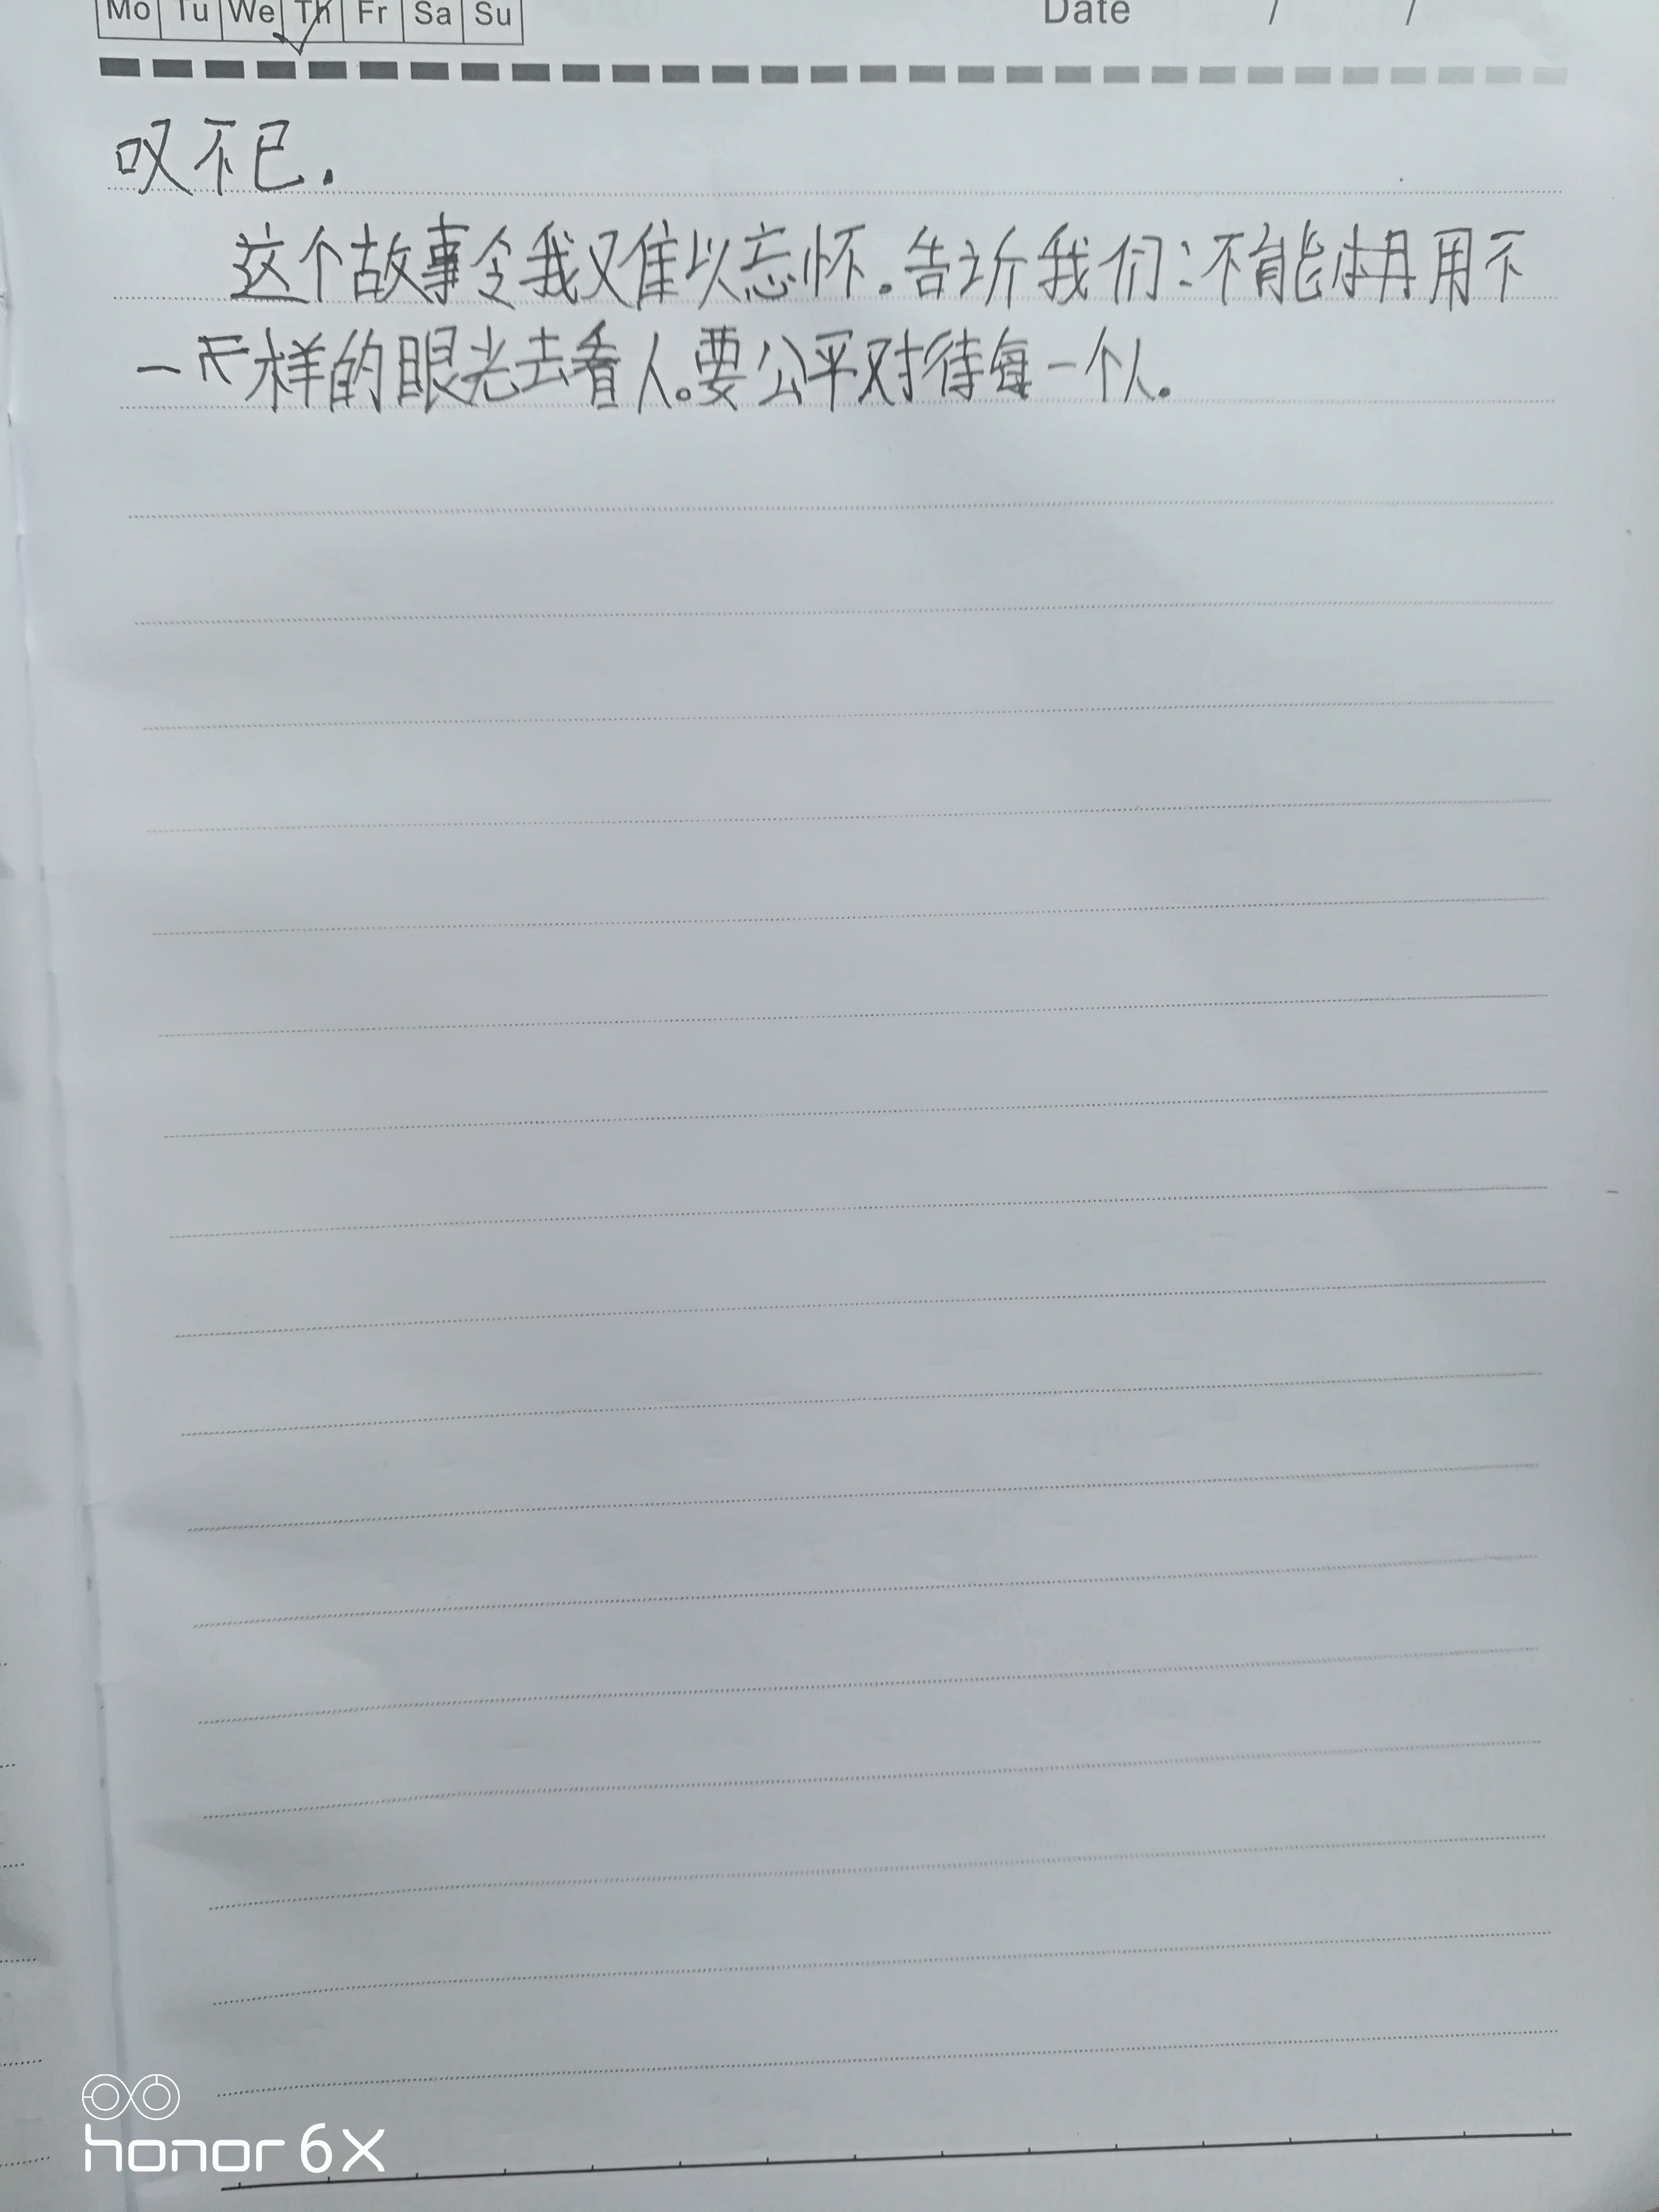 Mo Tu We Th Fr Sa Su Date / /
叹不已.
这个故事令我难以忘怀.告诉我们:不能用不
一样的眼光去看人。要公平对待每一个人.
honor 6X